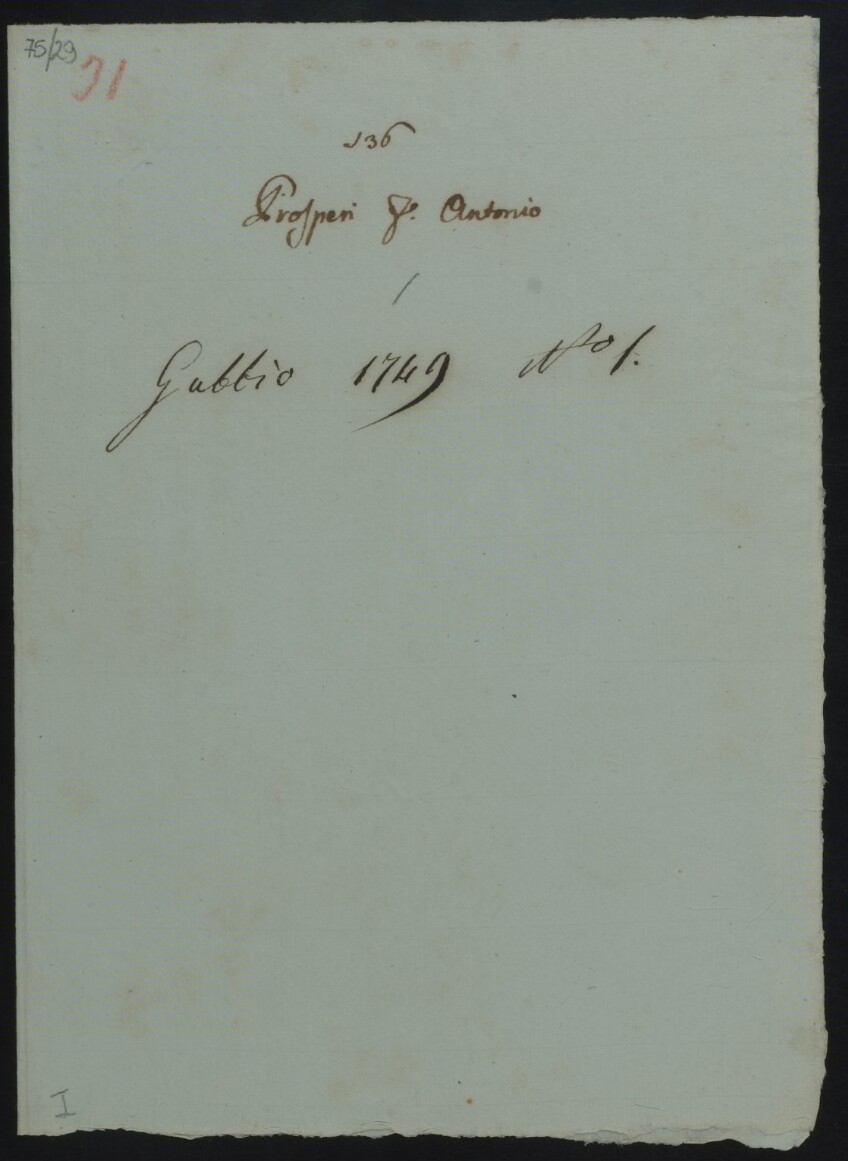 75/29
31
136
Prosperi F. Antonio
/
Gubbio 1749 No 1.
I